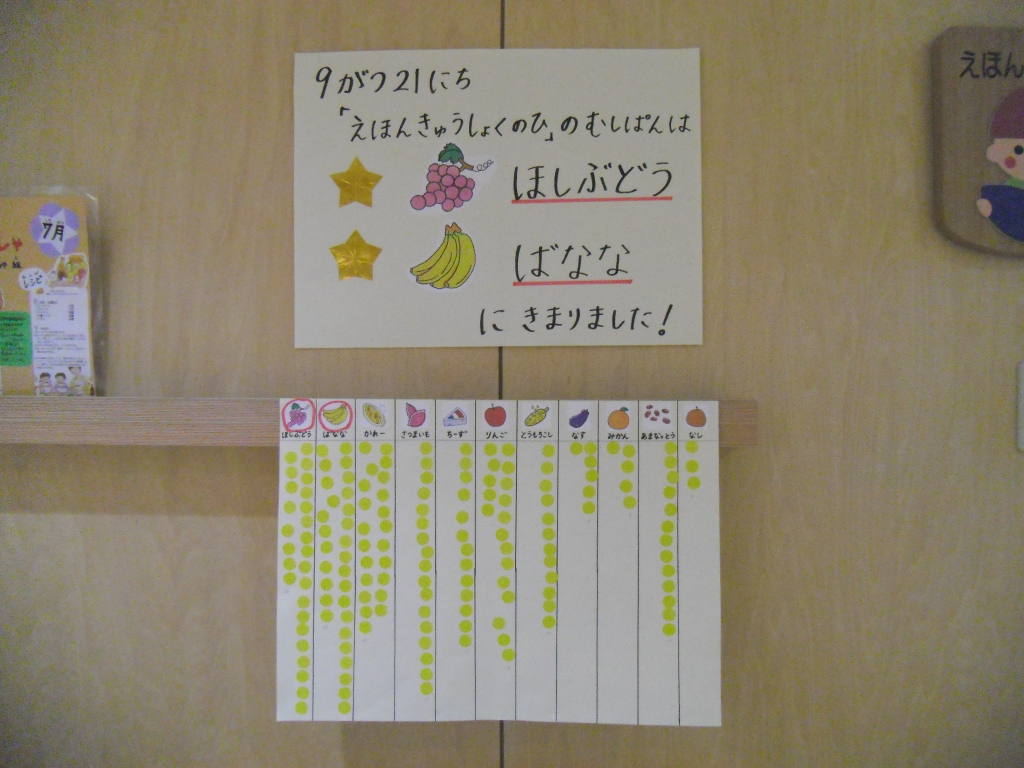 9がつ21にち
「えほんきゅうしょくのひ」のむしぱんは
ほしぶどう
ばなな
に きまりました!
ほしぶどう
ばなな
かれー
さつまいも
ちーず
りんご
とうもろこし
なす
みかん
あまなっとう
なし
えほん
7月
レシピ